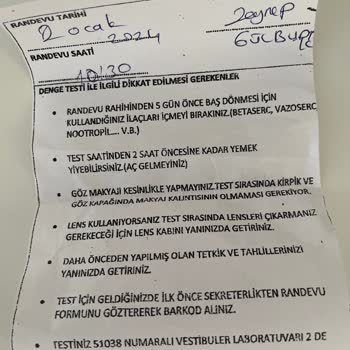 RANDEVU TARİHİ
2 ocak Zeynep
2024
RANDEVU SAATİ
10:30
DENGE TESTİ İLE İLGİLİ DİKKAT EDİLMESİ GEREKENLER
• RANDEVU RAHİHİNDEN 5 GÜN ÖNCE BAŞ DÖNMESİ İÇİN
KULLANDIĞINIZ İLAÇLARI İÇMEYİ BIRAKINIZ.(BETASERC, VAZOSERC,
NOOTROPİL.... V.B.)
• TEST SAATİNDEN 2 SAAT ÖNCESİNE KADAR YEMEK
YİYEBİLİRSİNİZ.(AÇ GELMEYİNİZ)
• GÖZ MAKYAJI KESİNLİKLE YAPMAYINIZ.TEST SIRASINDA KİRPİK VE
GÖZ KAPAĞINDA MAKYAJ KALINTISININ OLMAMASI GEREKİYOR.
• LENS KULLANIYORSANIZ TEST SIRASINDA LENSLERİ ÇIKARMANIZ
GEREKECEĞİ İÇİN LENS KABINI YANINIZDA GETİRİNİZ.
• DAHA ÖNCEDEN YAPILMIŞ OLAN TETKİK VE TAHLİLLERİNİZİ
YANINIZDA GETİRİNİZ.
• TEST İÇİN GELDİĞİNİZDE İLK ÖNCE SEKRETERLİKTEN RANDEVU
FORMUNU GÖZTEREREK BARKOD ALINIZ.
• TESTİNİZ 51038 NUMARALI VESTİBÜLER LABORATUVARI 2 DE